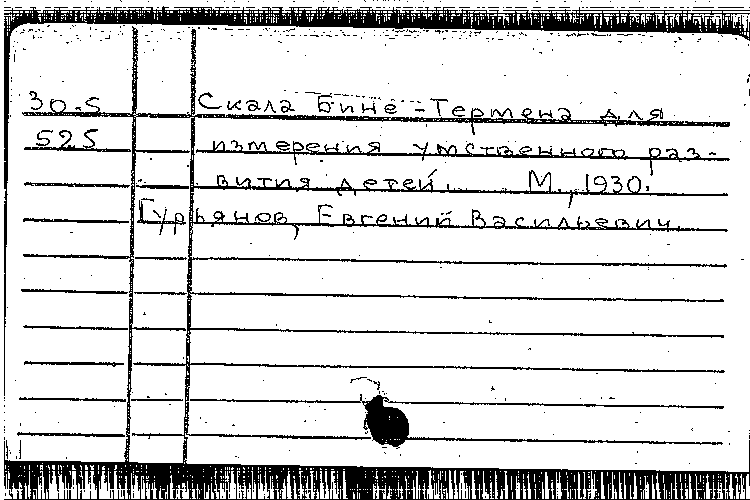 30-5 Скала Бине-Термена для
525 измерения умственного раз-
вития детей. М., 1930.
Гурьянов, Евгений Васильевич.